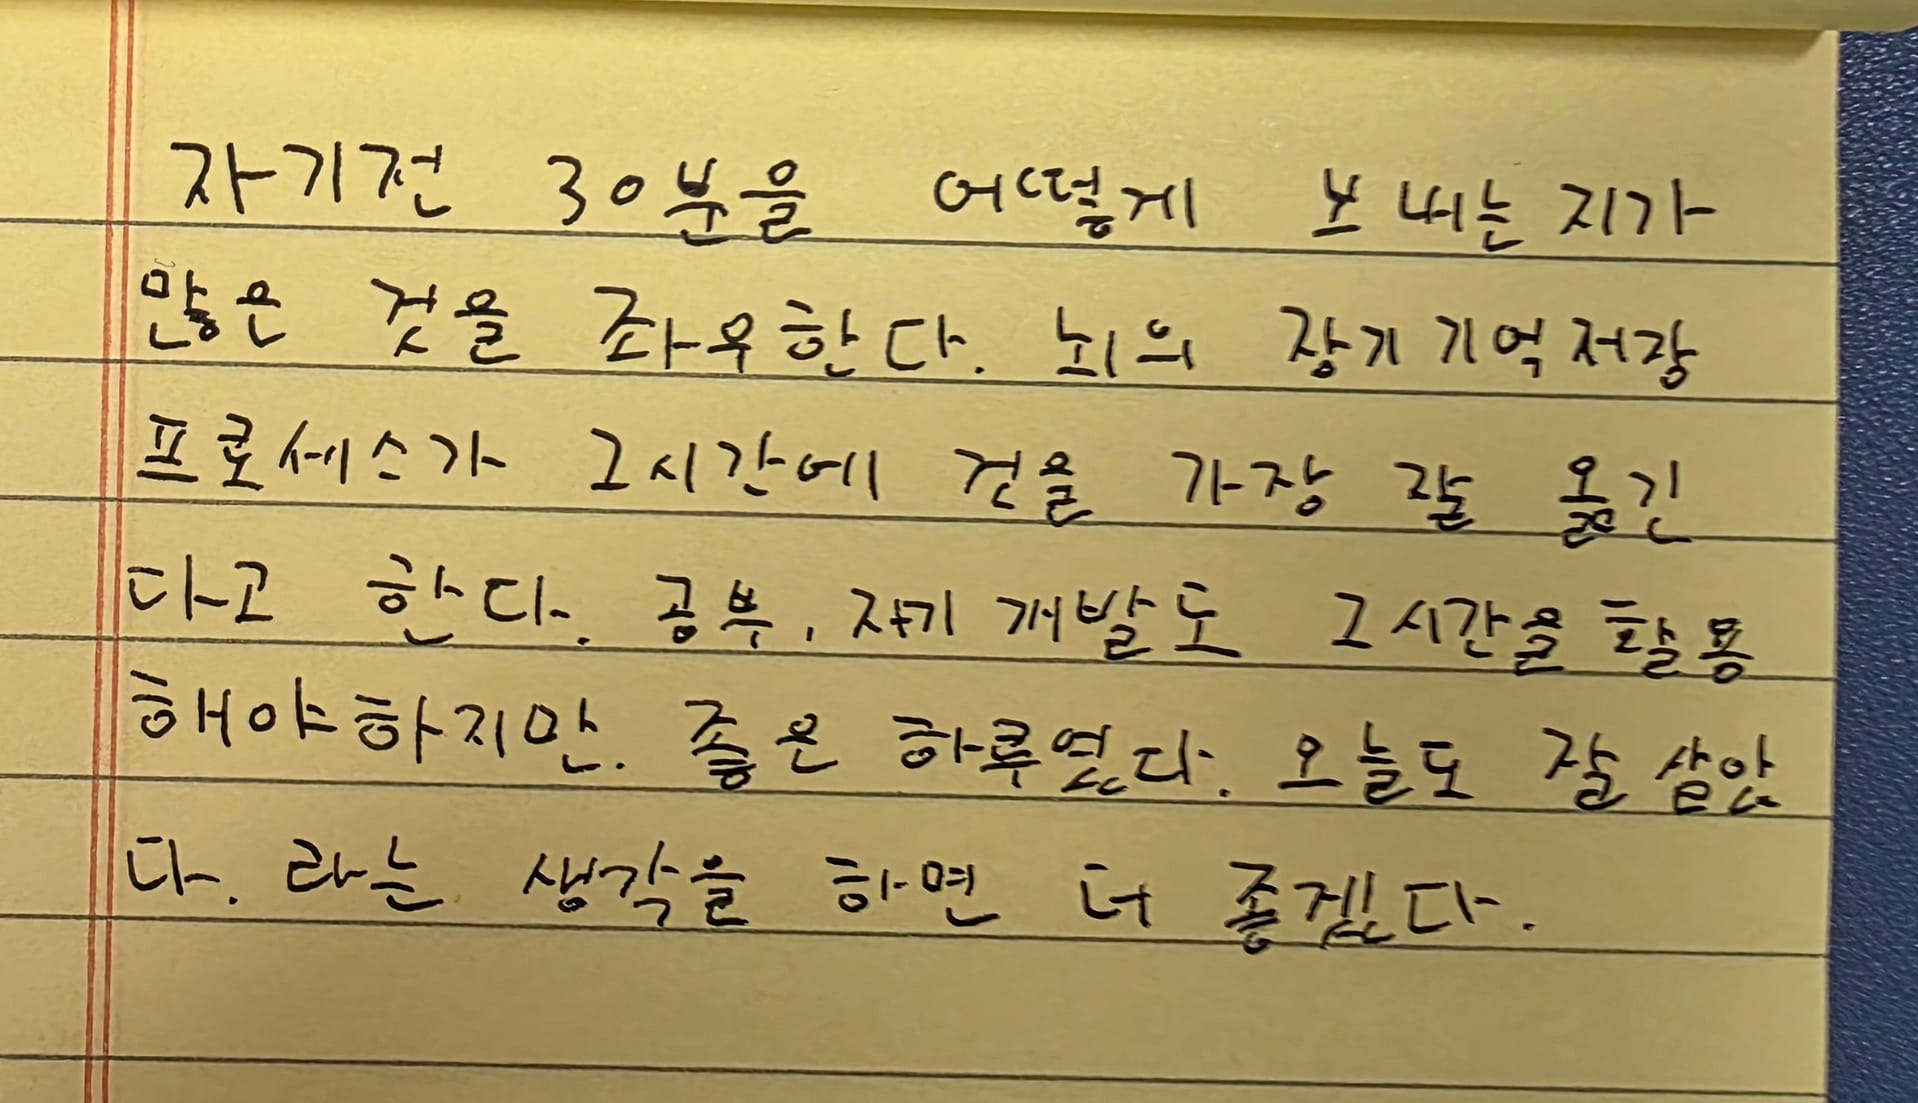 자기전 30분을 어떻게 보내는지가
많은 것을 좌우한다. 뇌의 장기기억저장
프로세스가 그시간에 것을 가장 잘 옮긴
다고 한다. 공부, 자기개발도 그시간을 활용
해야하지만. 좋은 하루였다. 오늘도 잘 살았
다. 라는 생각을 하면 더 좋겠다.